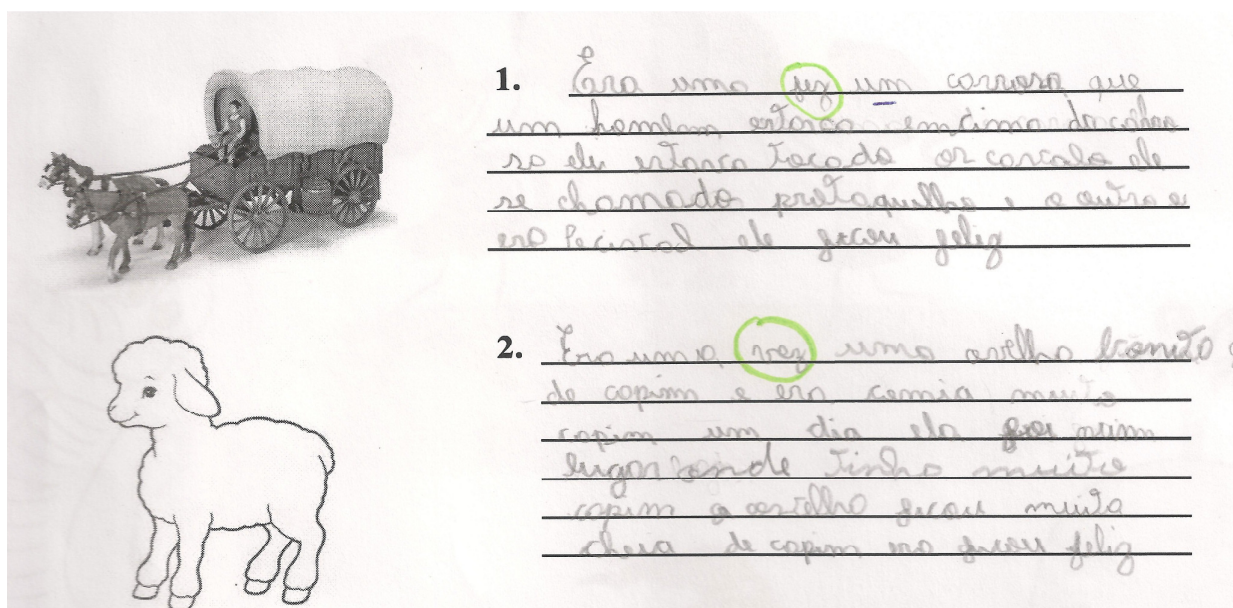 1. Era uma fez um carrosa que
um homem estava em cima da carro
sa ele estava tocado os cavalo ele
se chamado pretaquilha e o outro e
era ele ficou feliz
2. Era uma vez uma ovelha bonito
de capim e era comia muito
capim um dia ela foi nuim
lugar onde tinha muito
capim a ovelha ficou muito
cheia de capim era ficou feliz